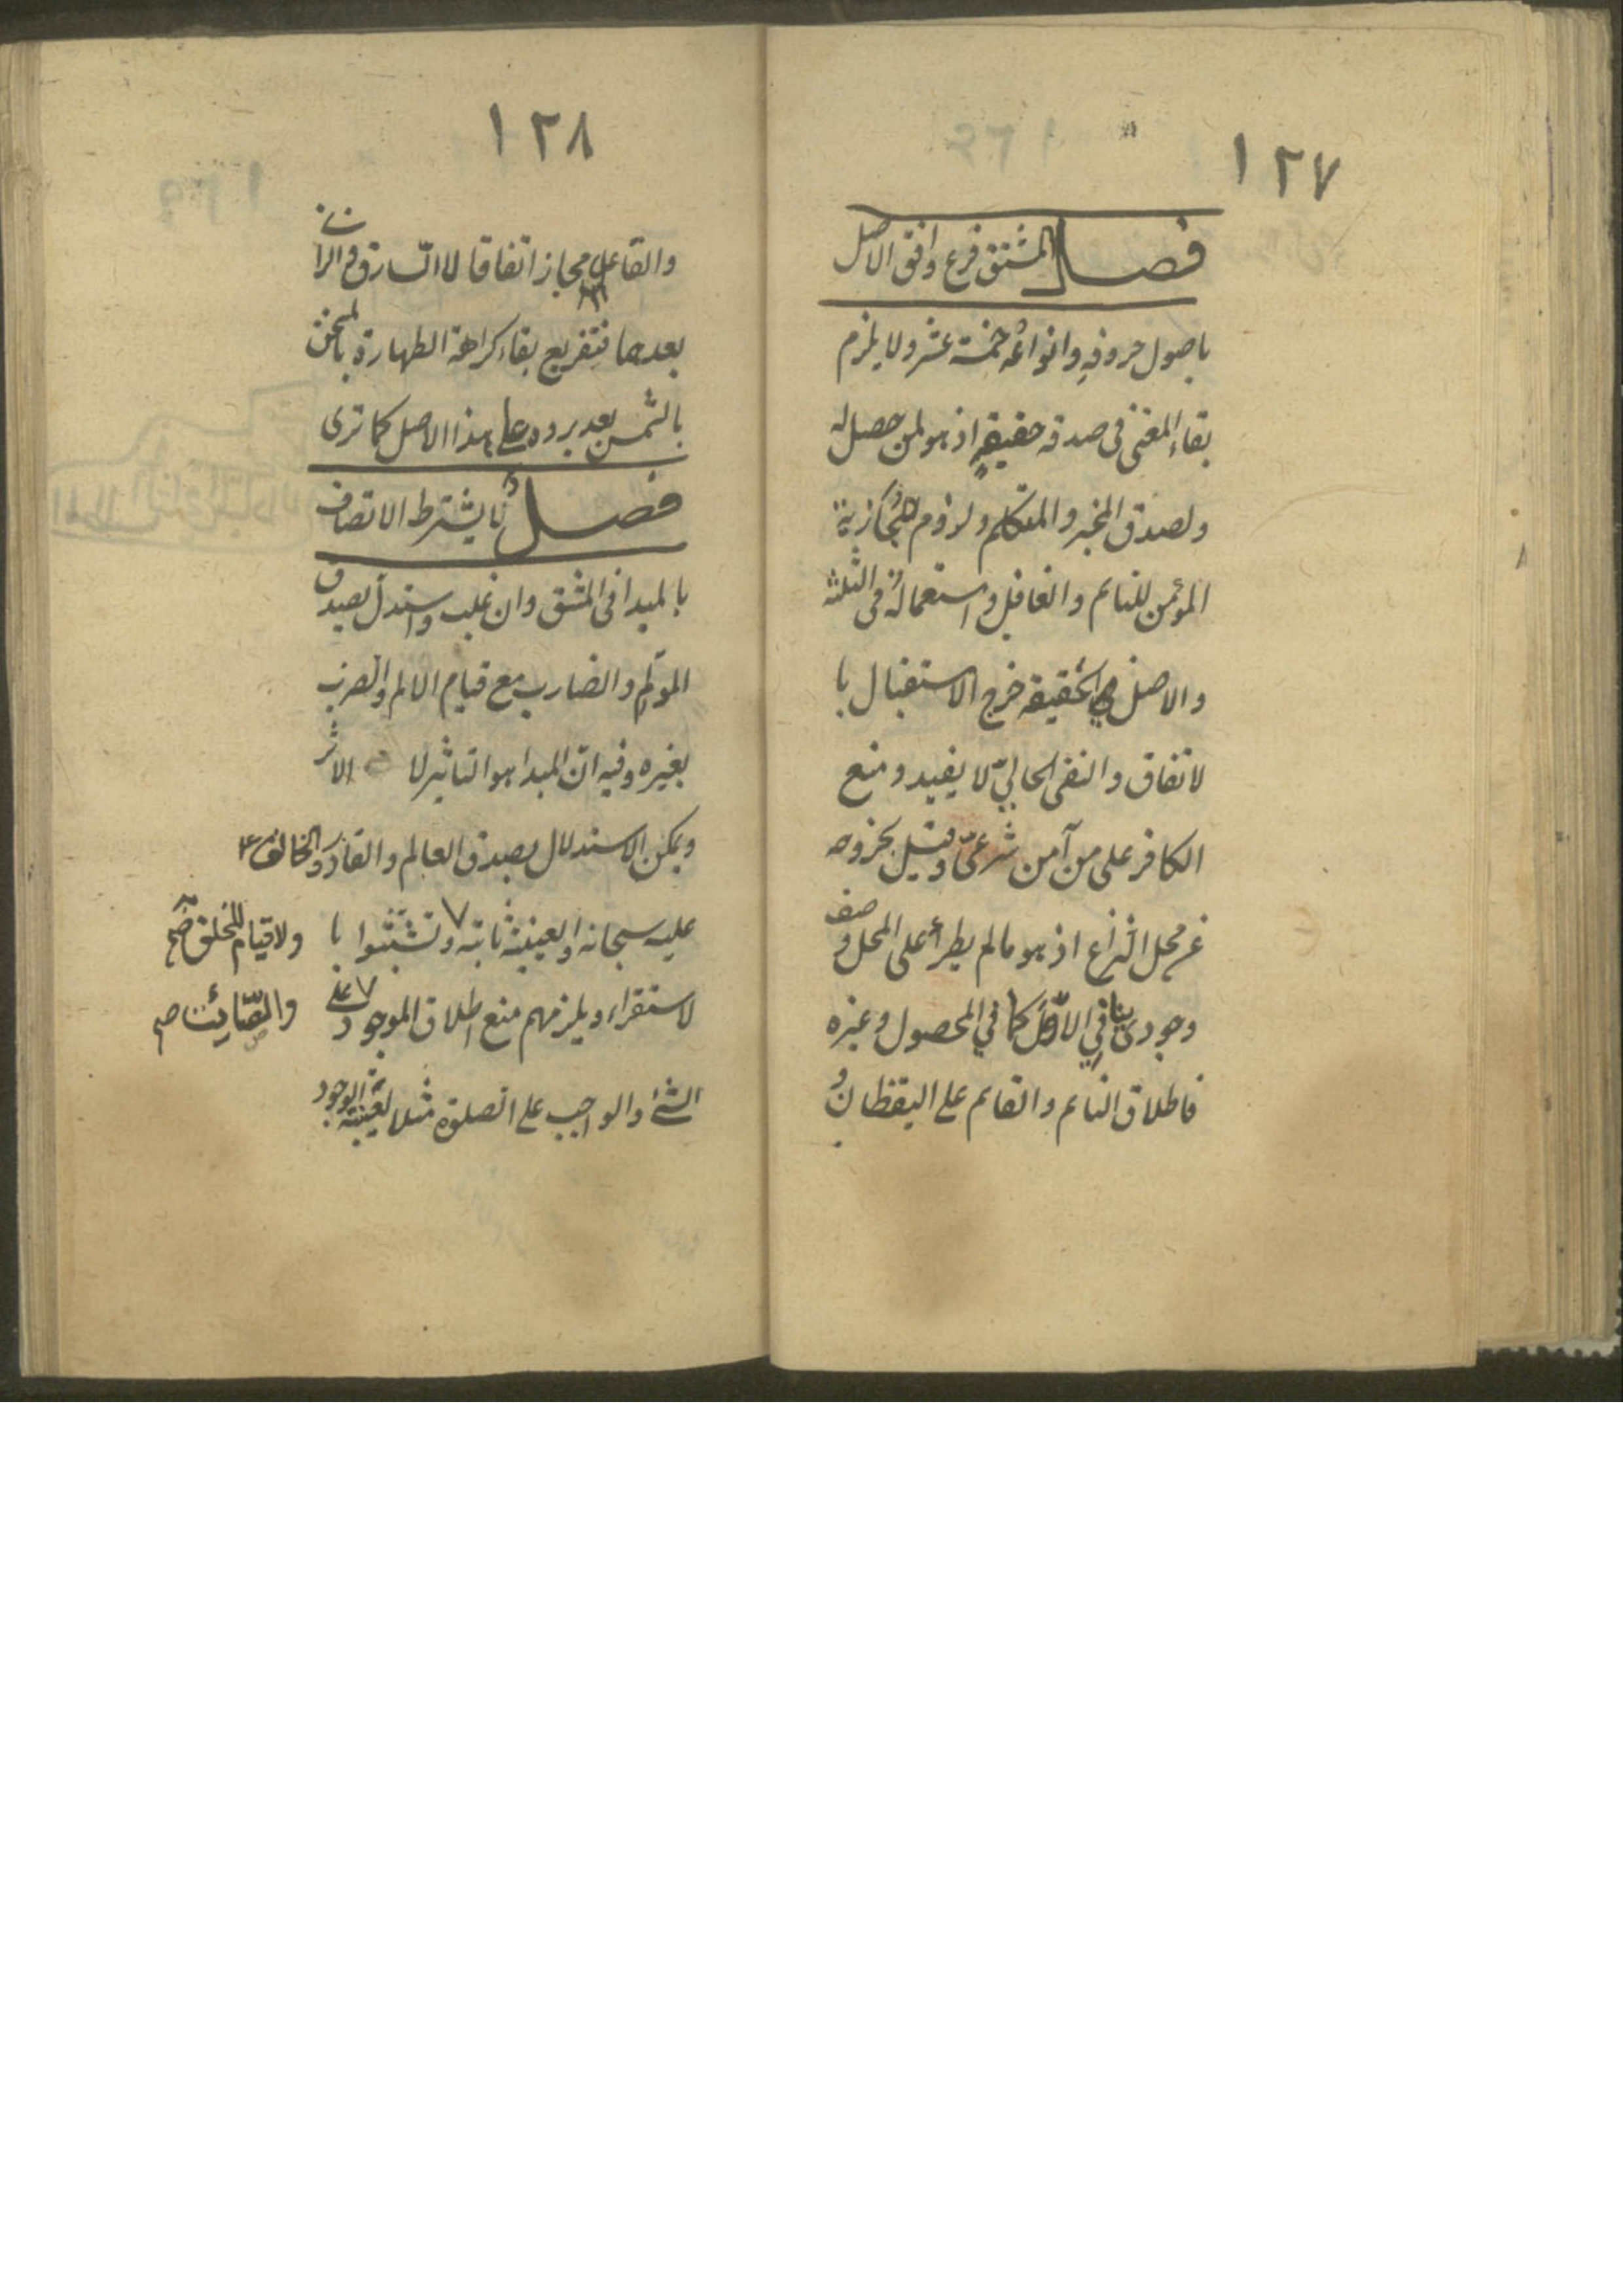 ١٢٧
فصل المشتق فرع وافق الاصل
باصول حروفه وانواعه خمسة عشر ولا يلزم
بقاء المعنى فى صدقه حقيقة اذ هو لمن حصل له
ولصدق المخبر والمتكلم ولزوم مجازية
المؤمن للنائم والغافل واستعماله فى الثلثة
والاصل الحقيقة خرج الاستقبال با
لاتفاق والنفى الحالىّ لا يفيد ومنع
الكافر على من آمن شرعىّ وقيل بخروجه
عن محل النزاع اذ هو مالم يطرأ على المحل وصف
وجودى ينافي الاوّل كما في المحصول وغيره
فاطلاق النائم والقائم على اليقظان و
١٢٨
والقاعد مجاز اتفاقا لا السارق والزانى
بعدهما فتفريع بقاء كراهة الطهارة بالمسخن
بالشمس بعد برده على هذا الاصل كما ترى
فصل لا يشترط الاتصاف
بالمبدا فى المشتق وان غلب واستدل بصدق
المولم والضارب مع قيام الالم والضرب
بغيره وفيه ان المبدا هو التاثير لا الاثر
ويمكن الاستدلال بصدق العالم والقادر والخالق
عليه سبحانه والعينية ثابتة وتشبثوا با
ولا قيام للخلق صح
لاستقراء ويلزمهم منع اطلاق الموجود على
والصّائت صح
الشئ والواجب على الصلوة مثلا لعينية الوجود